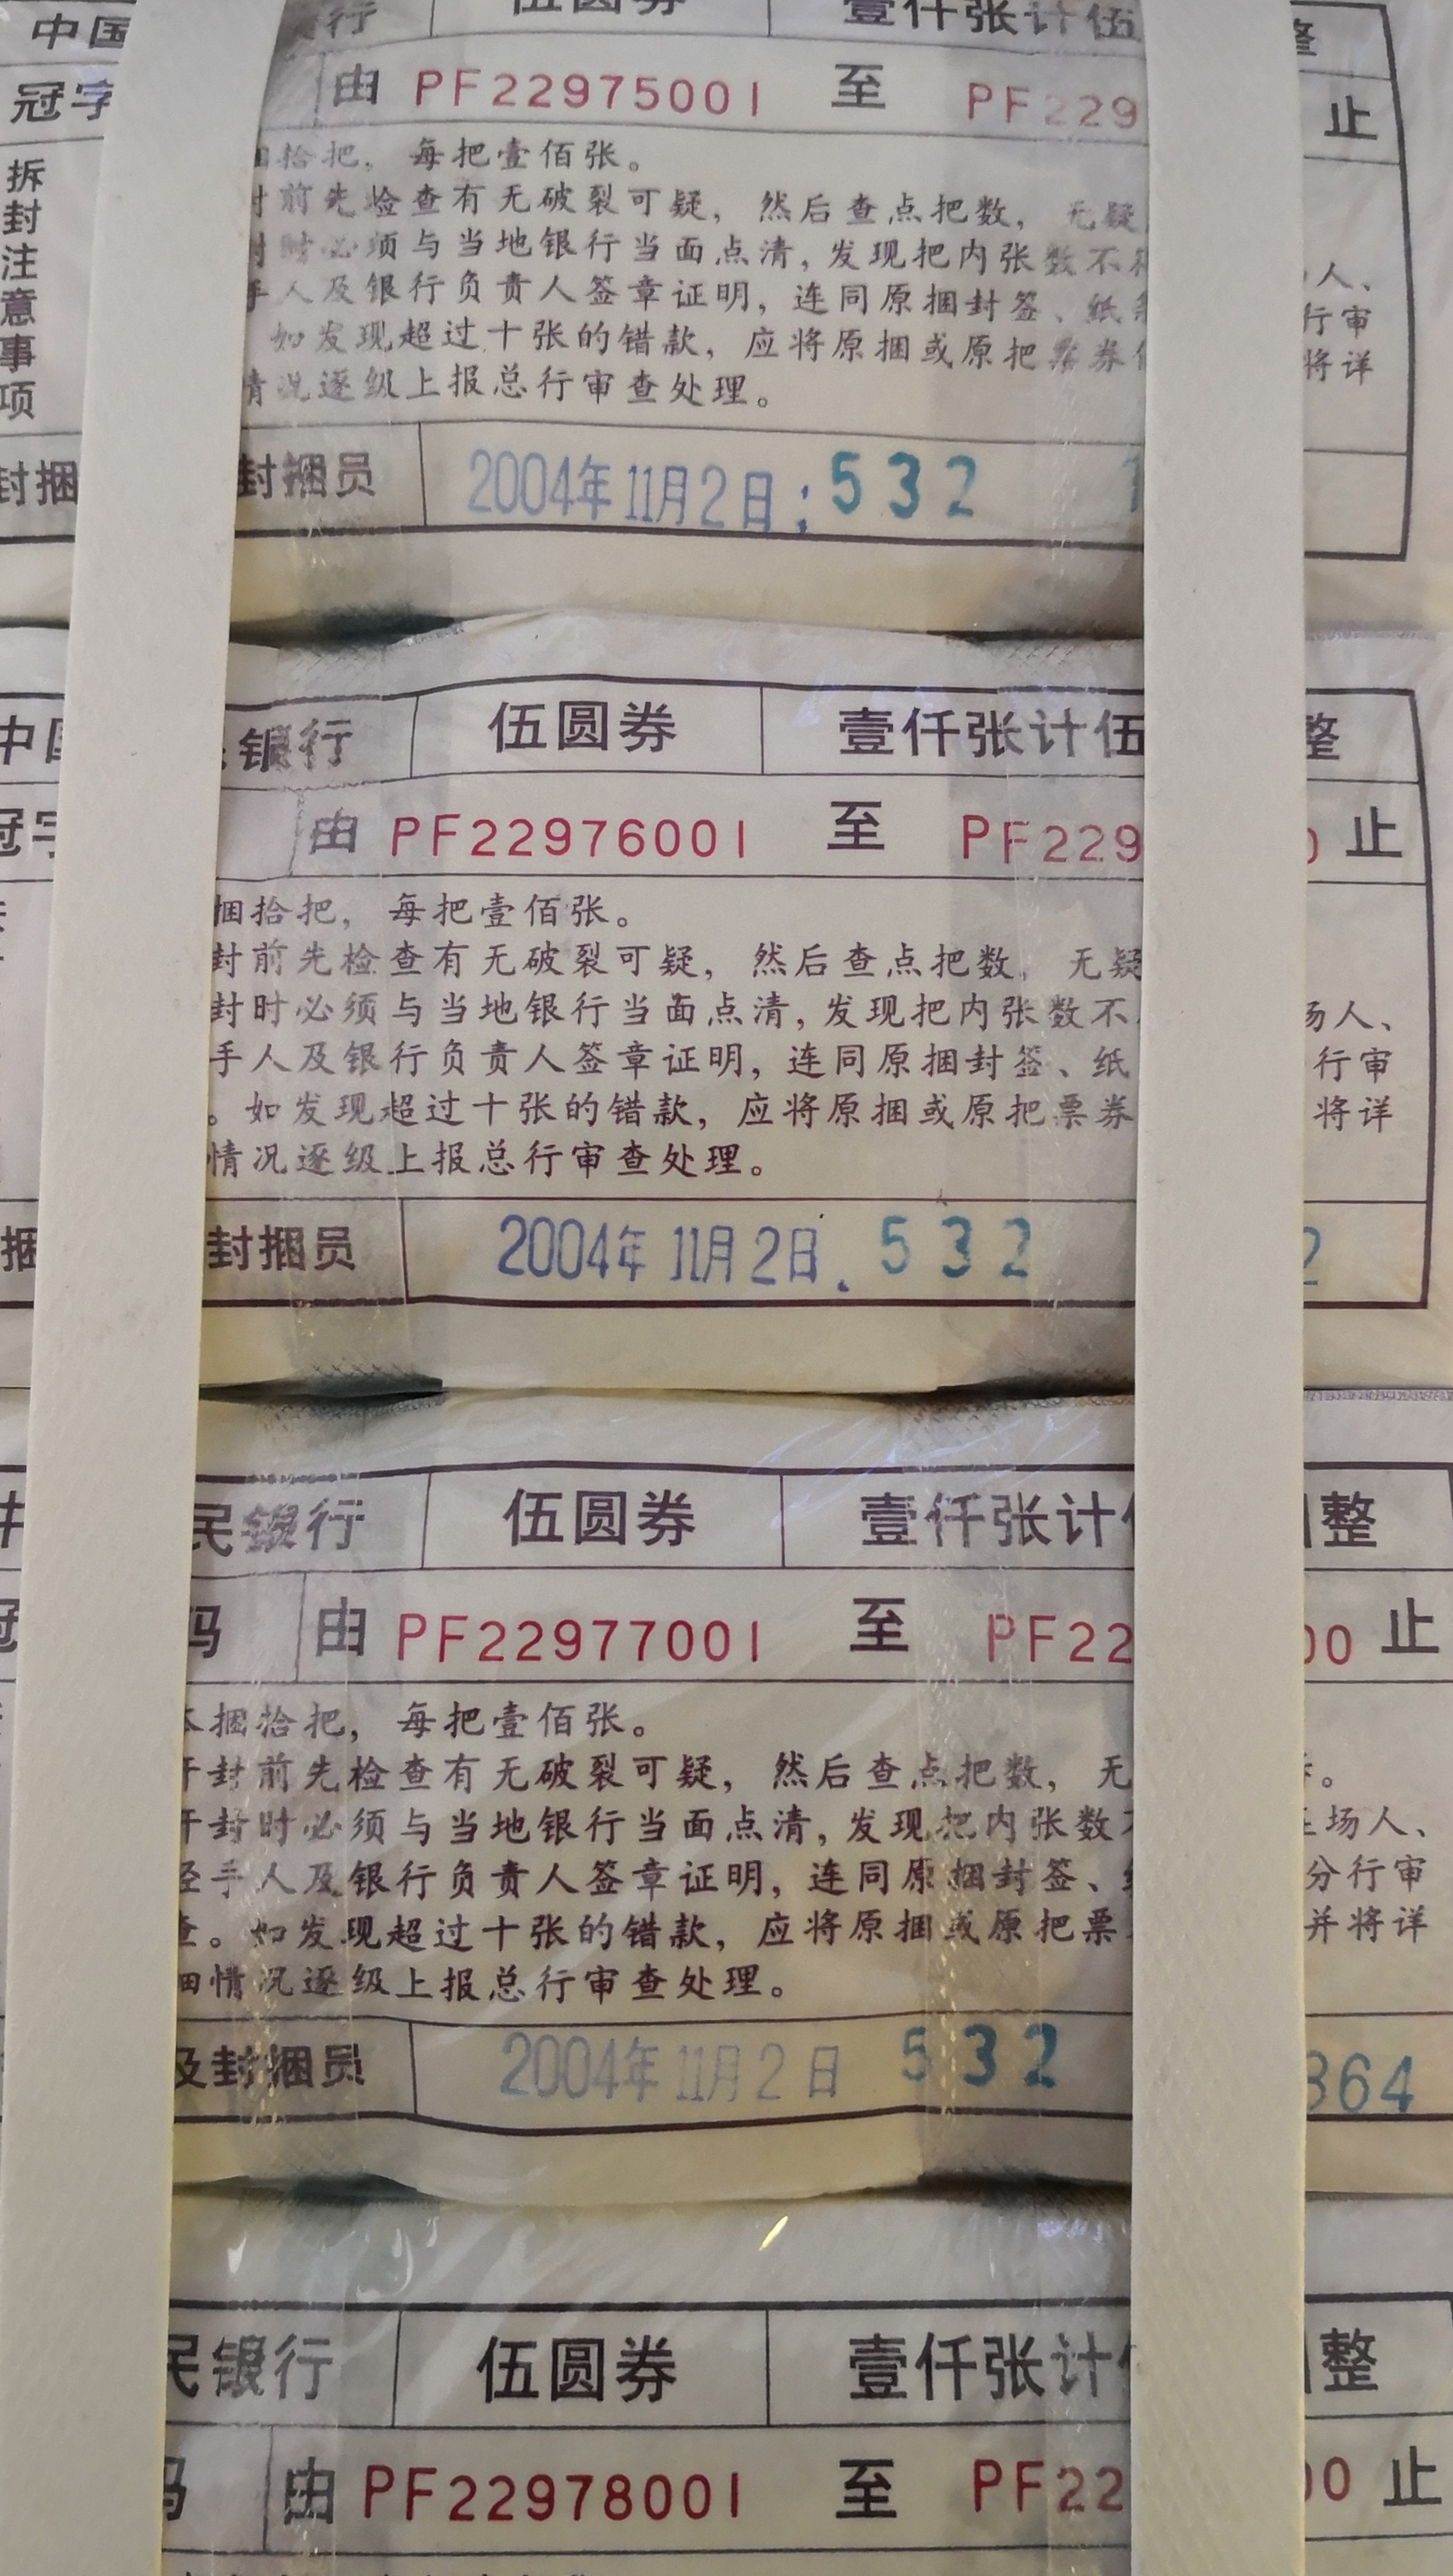 中国 行 伍圆券 壹仟张计伍 整
冠字 由 PF22975001 至 PF229 止
拆封注意事项
拾把，每把壹佰张。
封前先检查有无破裂可疑，然后查点把数，无疑
封时必须与当地银行当面点清，发现把内张数不 人、
手人及银行负责人签章证明，连同原捆封签、纸 行审
如发现超过十张的错款，应将原捆或原把票券 将详
情况逐级上报总行审查处理。
封捆 封捆员 2004年11月2日 532
中国 银行 伍圆券 壹仟张计伍 整
冠字 由 PF22976001 至 PF229 0 止
捆拾把，每把壹佰张。
封前先检查有无破裂可疑，然后查点把数，无疑
封时必须与当地银行当面点清，发现把内张数不 场人、
手人及银行负责人签章证明，连同原捆封签、纸 行审
。如发现超过十张的错款，应将原捆或原把票券 将详
情况逐级上报总行审查处理。
捆 封捆员 2004年11月2日 532 2
民银行 伍圆券 壹仟张计 整
冠 码 由 PF22977001 至 PF22 00 止
本捆拾把，每把壹佰张。
开封前先检查有无破裂可疑，然后查点把数，无 。
开封时必须与当地银行当面点清，发现把内张数 场人、
经手人及银行负责人签章证明，连同原捆封签、 分行审
查。如发现超过十张的错款，应将原捆或原把票 并将详
细情况逐级上报总行审查处理。
及封捆员 2004年11月2日 532 364
民银行 伍圆券 壹仟张计 整
码 由 PF22978001 至 PF22 00 止